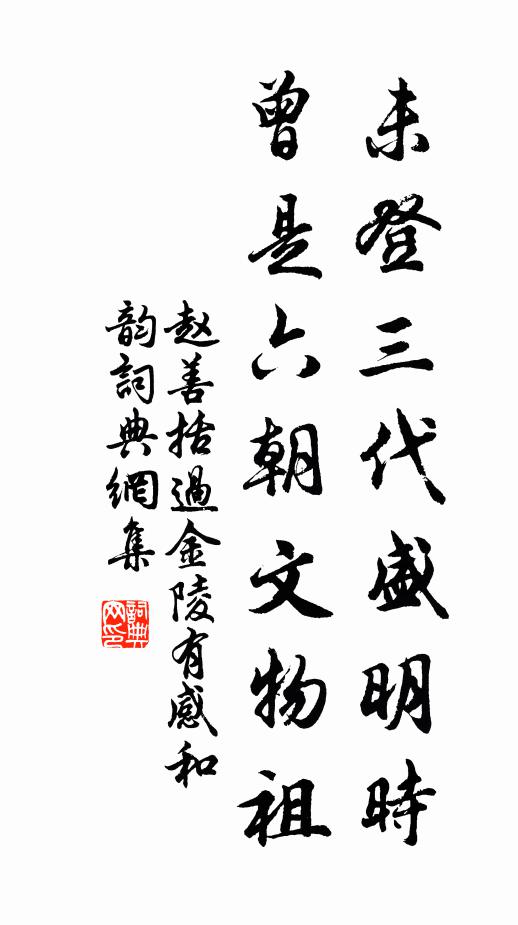 未登三代盛明時
曾是六朝文物祖
赵善括過金陵有感和
韵詞典網集
詞典
网印